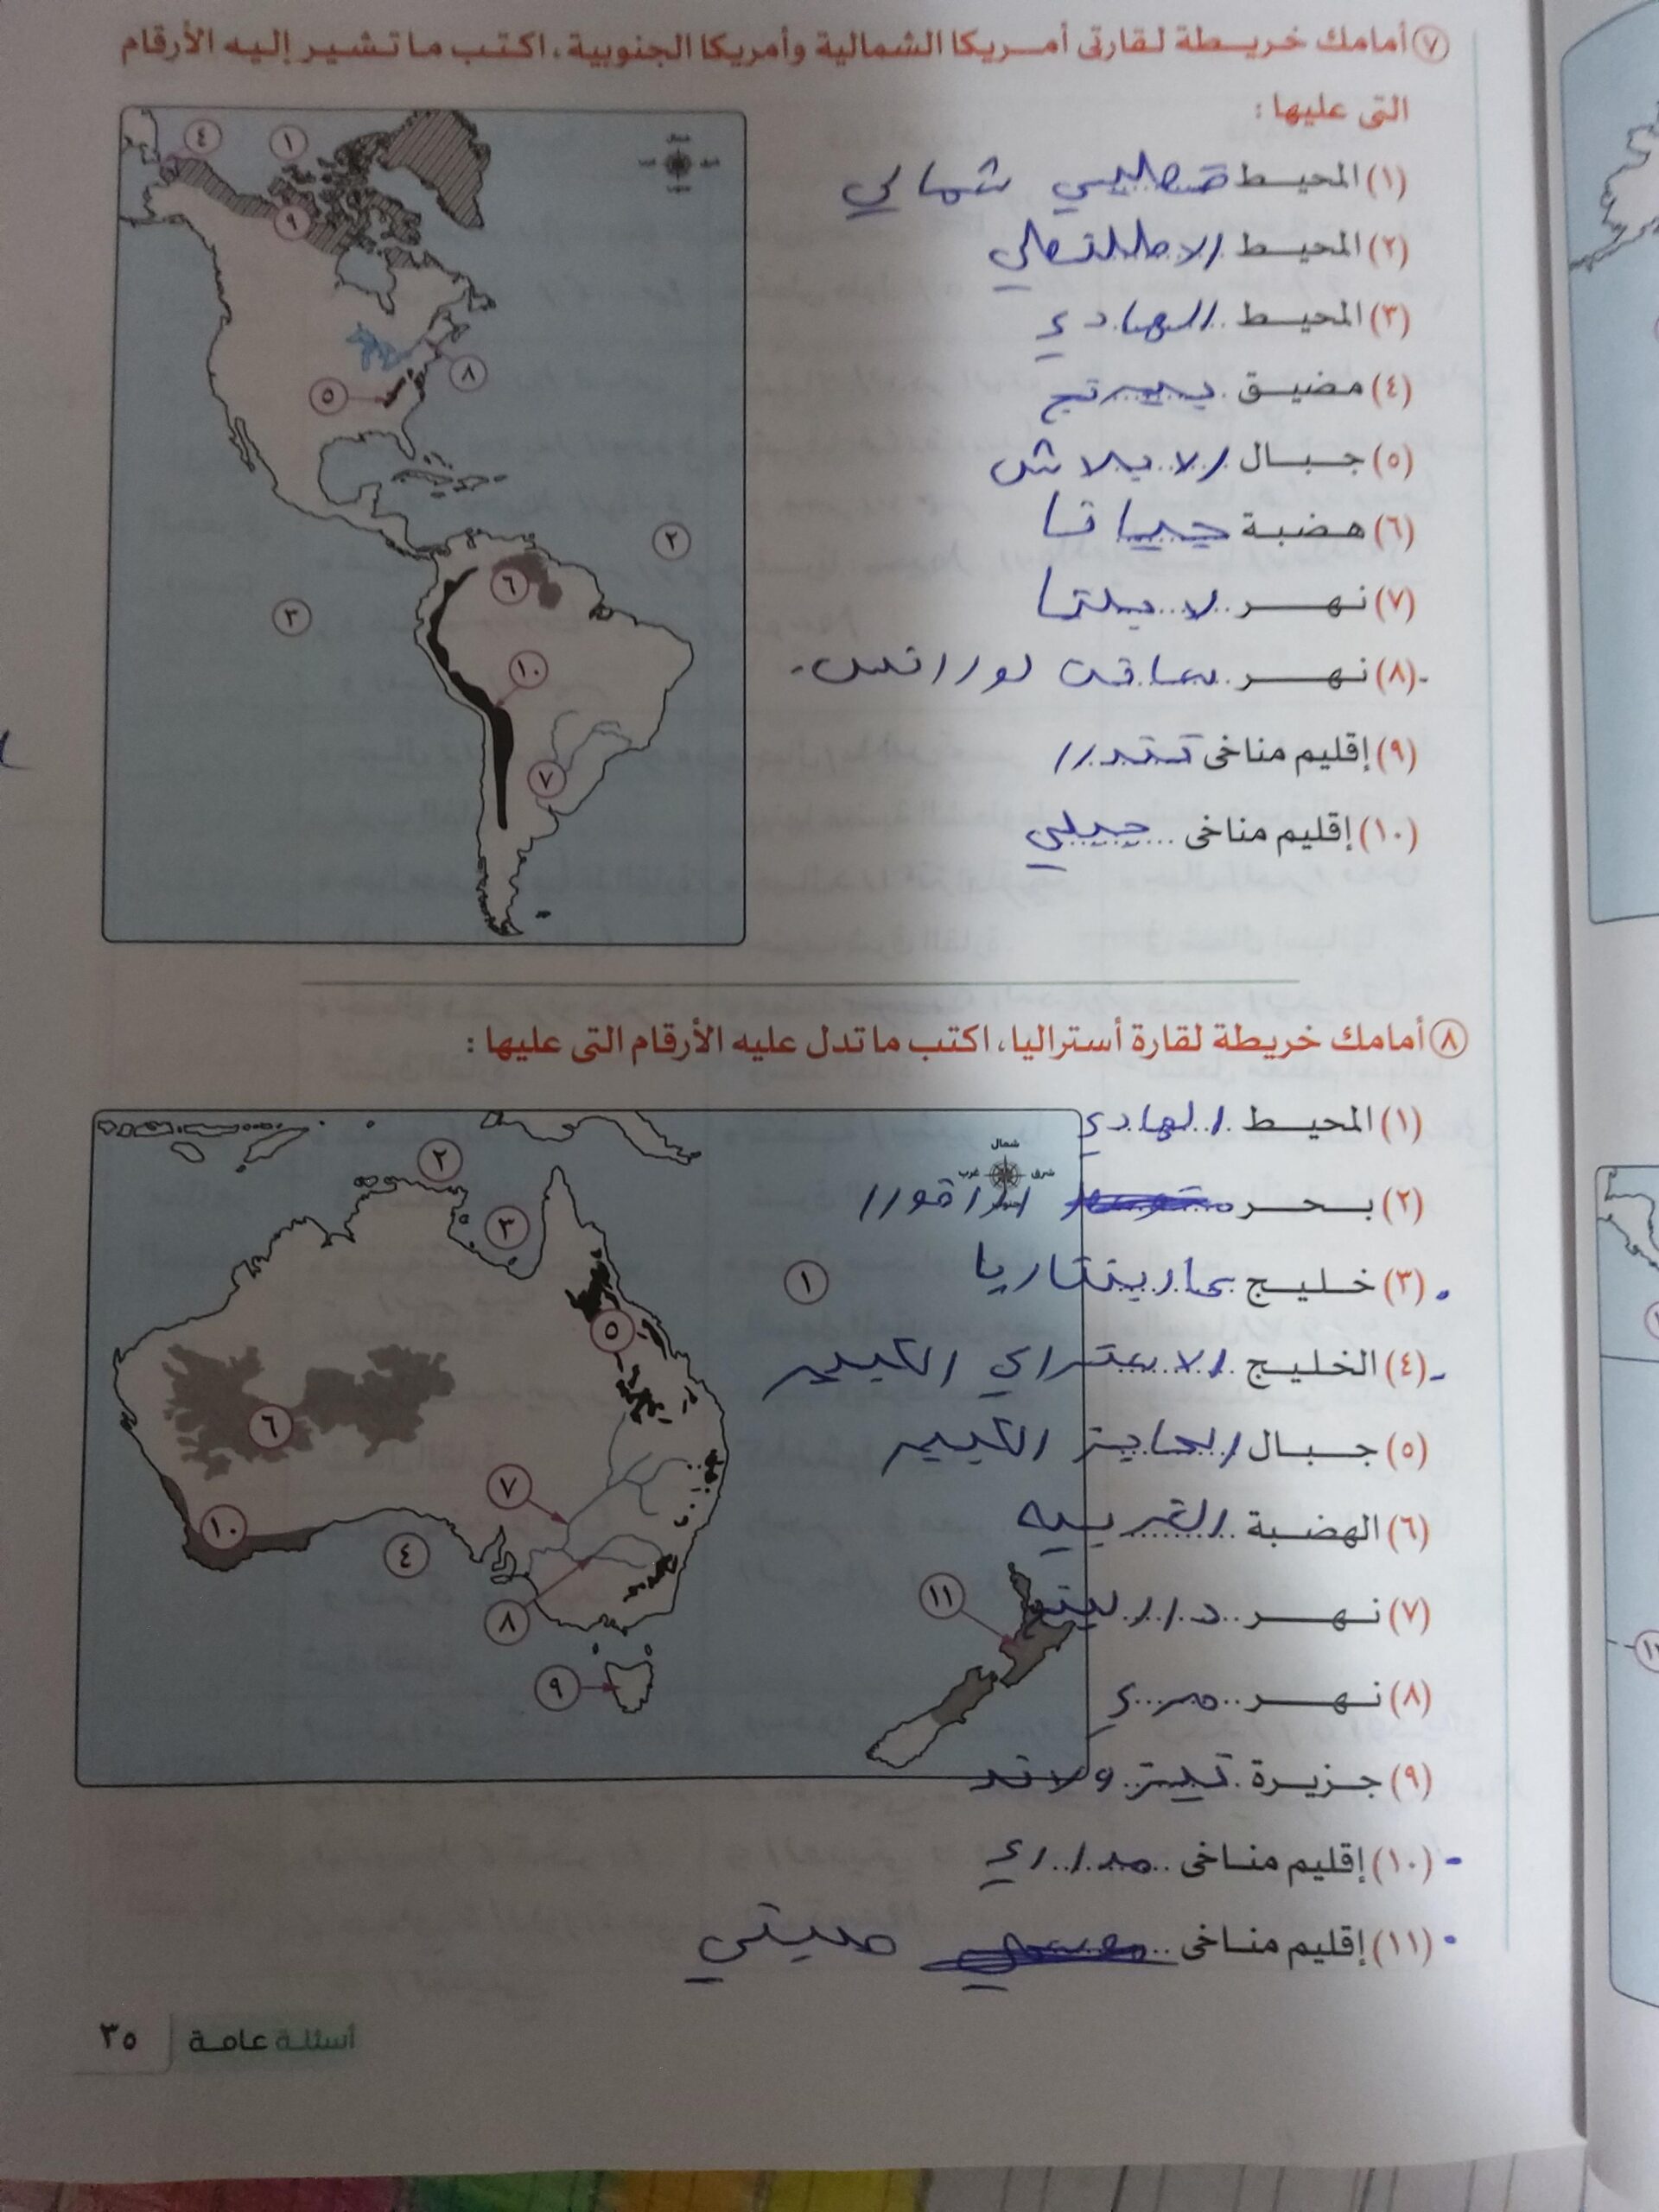 ٧ أمامك خريطة لقارتى أمريكا الشمالية وأمريكا الجنوبية، اكتب ما تشير إليه الأرقام
التى عليها :
(١) المحيط قطبي شمالي
(٢) المحيط الاطلنطي
(٣) المحيط الهادي
(٤) مضيق بيرنج
(٥) جبال الابلاش
(٦) هضبة جيانا
(٧) نهر لابلتا
(٨) نهر سانت لورانس
(٩) إقليم مناخى تندرا
(١٠) إقليم مناخى جبلي
شمال
٤
١
٩
٨
٥
٢
٦
٣
١٠
٧
٨ أمامك خريطة لقارة أستراليا، اكتب ما تدل عليه الأرقام التى عليها :
(١) المحيط الهادي
(٢) بحر ارافورا
(٣) خليج كارينتاريا
(٤) الخليج الاسترالي الكبير
(٥) جبال الحاجز الكبير
(٦) الهضبة الغربيه
(٧) نهر دارلينج
(٨) نهر مري
(٩) جزيرة
(١٠) إقليم مناخى مداري
(١١) إقليم مناخى صيني
شمال
شرق
غرب
٢
٣
١
٥
٦
٧
١٠
٤
٨
١١
٩
أسئلة عامة
٣٥